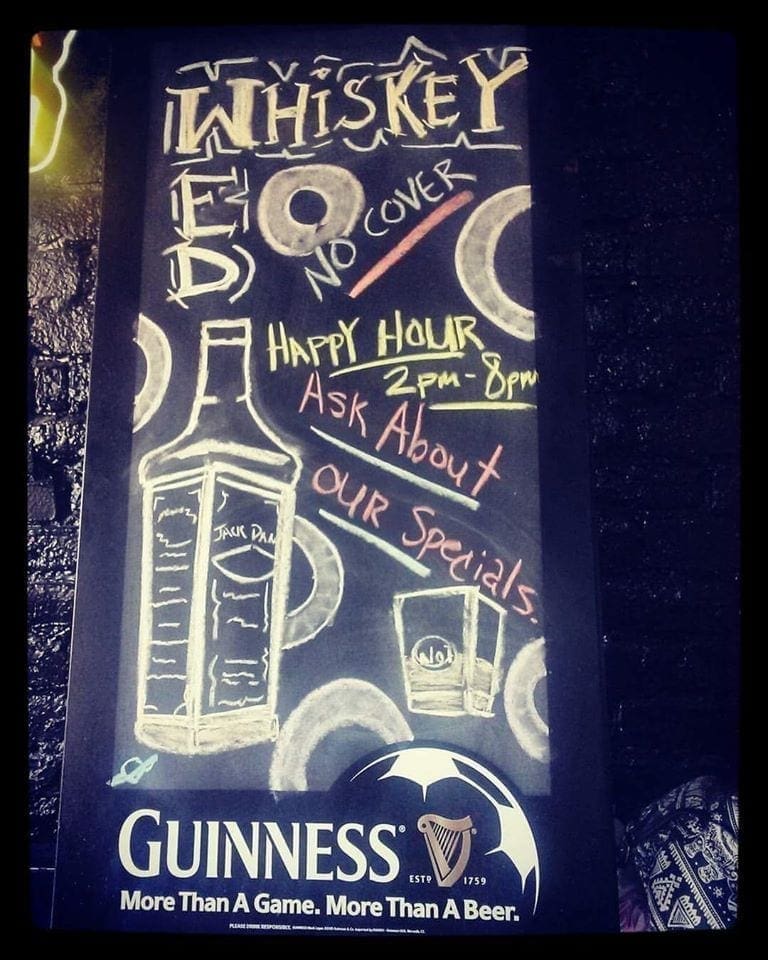 WHiSKEY
WED
NO COVER
HAPPY HOUR
2pm-8pm
Ask About
OUR Specials.
JACK DAN
GUINNESS
ESTD 1759
More Than A Game. More Than A Beer.
PLEASE DRINK RESPONSIBLY.